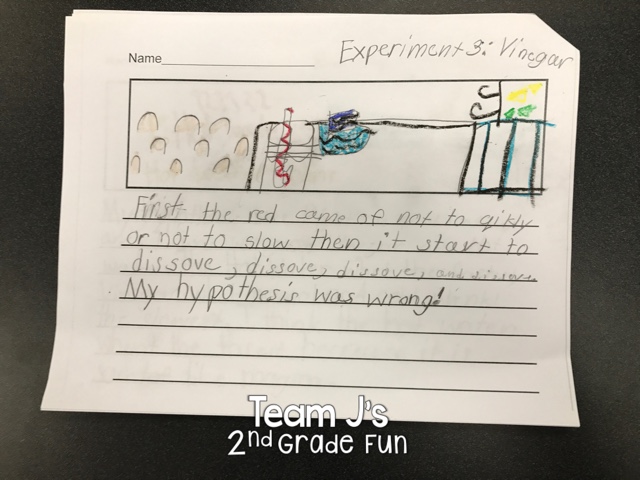 Name
Experiment 3: Vinegar
First the red came of not to qikly
or not to slow then it start to
dissove, dissove, dissove, and dissove.
My hypothesis was wrong!
Team J's
2nd Grade Fun